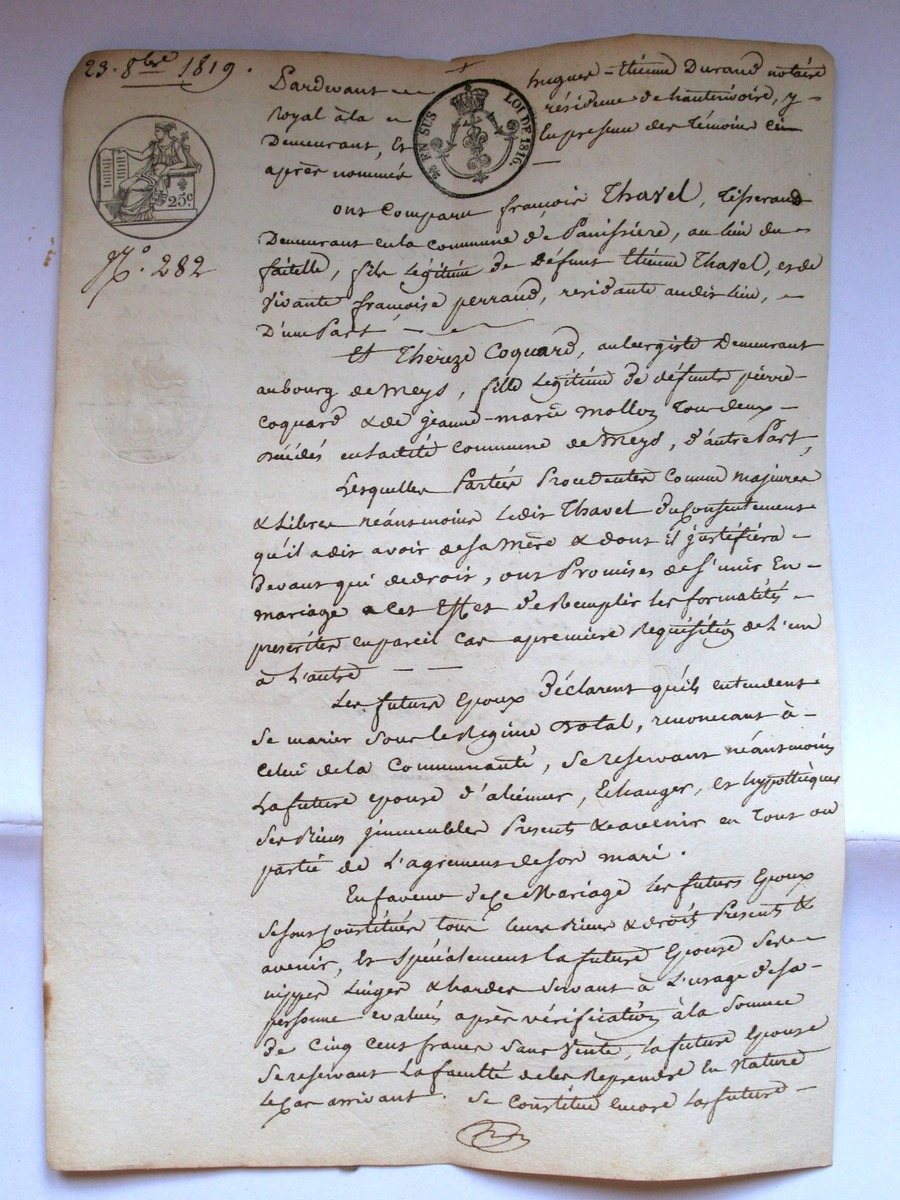 23. 8bre 1819.
Pardevant hugues-étienne Durand notaire
royal à la résidence de hauterivoire, y
Demeurant, Et En presence des témoins ci-
après nommés
25 EN SUS LOI DE 1816.
25c
No. 282
ont Comparu françois Thavel, tisserand
Demeurant en la commune de Panissière, au lieu du
faitelle, fils Légitime de défunt étienne Thavel, et de
vivante françoise perraud, residante audit lieu,
D'une Part,
Et Thérèze Coquard, aubergiste Demeurant
au bourg de meys, fille Légitime de défunts pierre
Coquard & de jeanne-marie molloz tous deux
décédés en laditte commune de meys, d'autre Part,
Lesquelles Parties Procedentes comme majeures
& Libres néansmoins Ledit Thavel du Consentement
qu'il a dit avoir de sa mère & dont il justifiera
Devant qui de droit, ont Promises de S'unir En
mariage & a Cet Effet de Remplir Les formalités
prescrites en pareil cas a première Requisition de L'un
à L'autre
Les futurs Epoux Déclarent qu'ils entendent
Se marier Sous le Régime Dotal, renoncant à
Celui de la Communauté, Se reservant néansmoins
La future epouse d'aliéner, Echanger, et hypothèquer
Ses Biens jmmeubles Presents & avenir en Tout ou
partie de L'agrement de son mari.
En faveur de Ce Mariage Les futurs Epoux
Se sont Constitués tous leurs Biens & droits Presents &
avenir, Et Spécialement la future Epouse Ses
nippes Linges & hardes Servant à L'usage de sa
personne evalués après vérification à la Somme
de Cinq Cent francs Sans Vente, La future Epouse
Se reservant La faculté de les Reprendre En Nature
Le Cas arrivant. Se Constitue encore La future